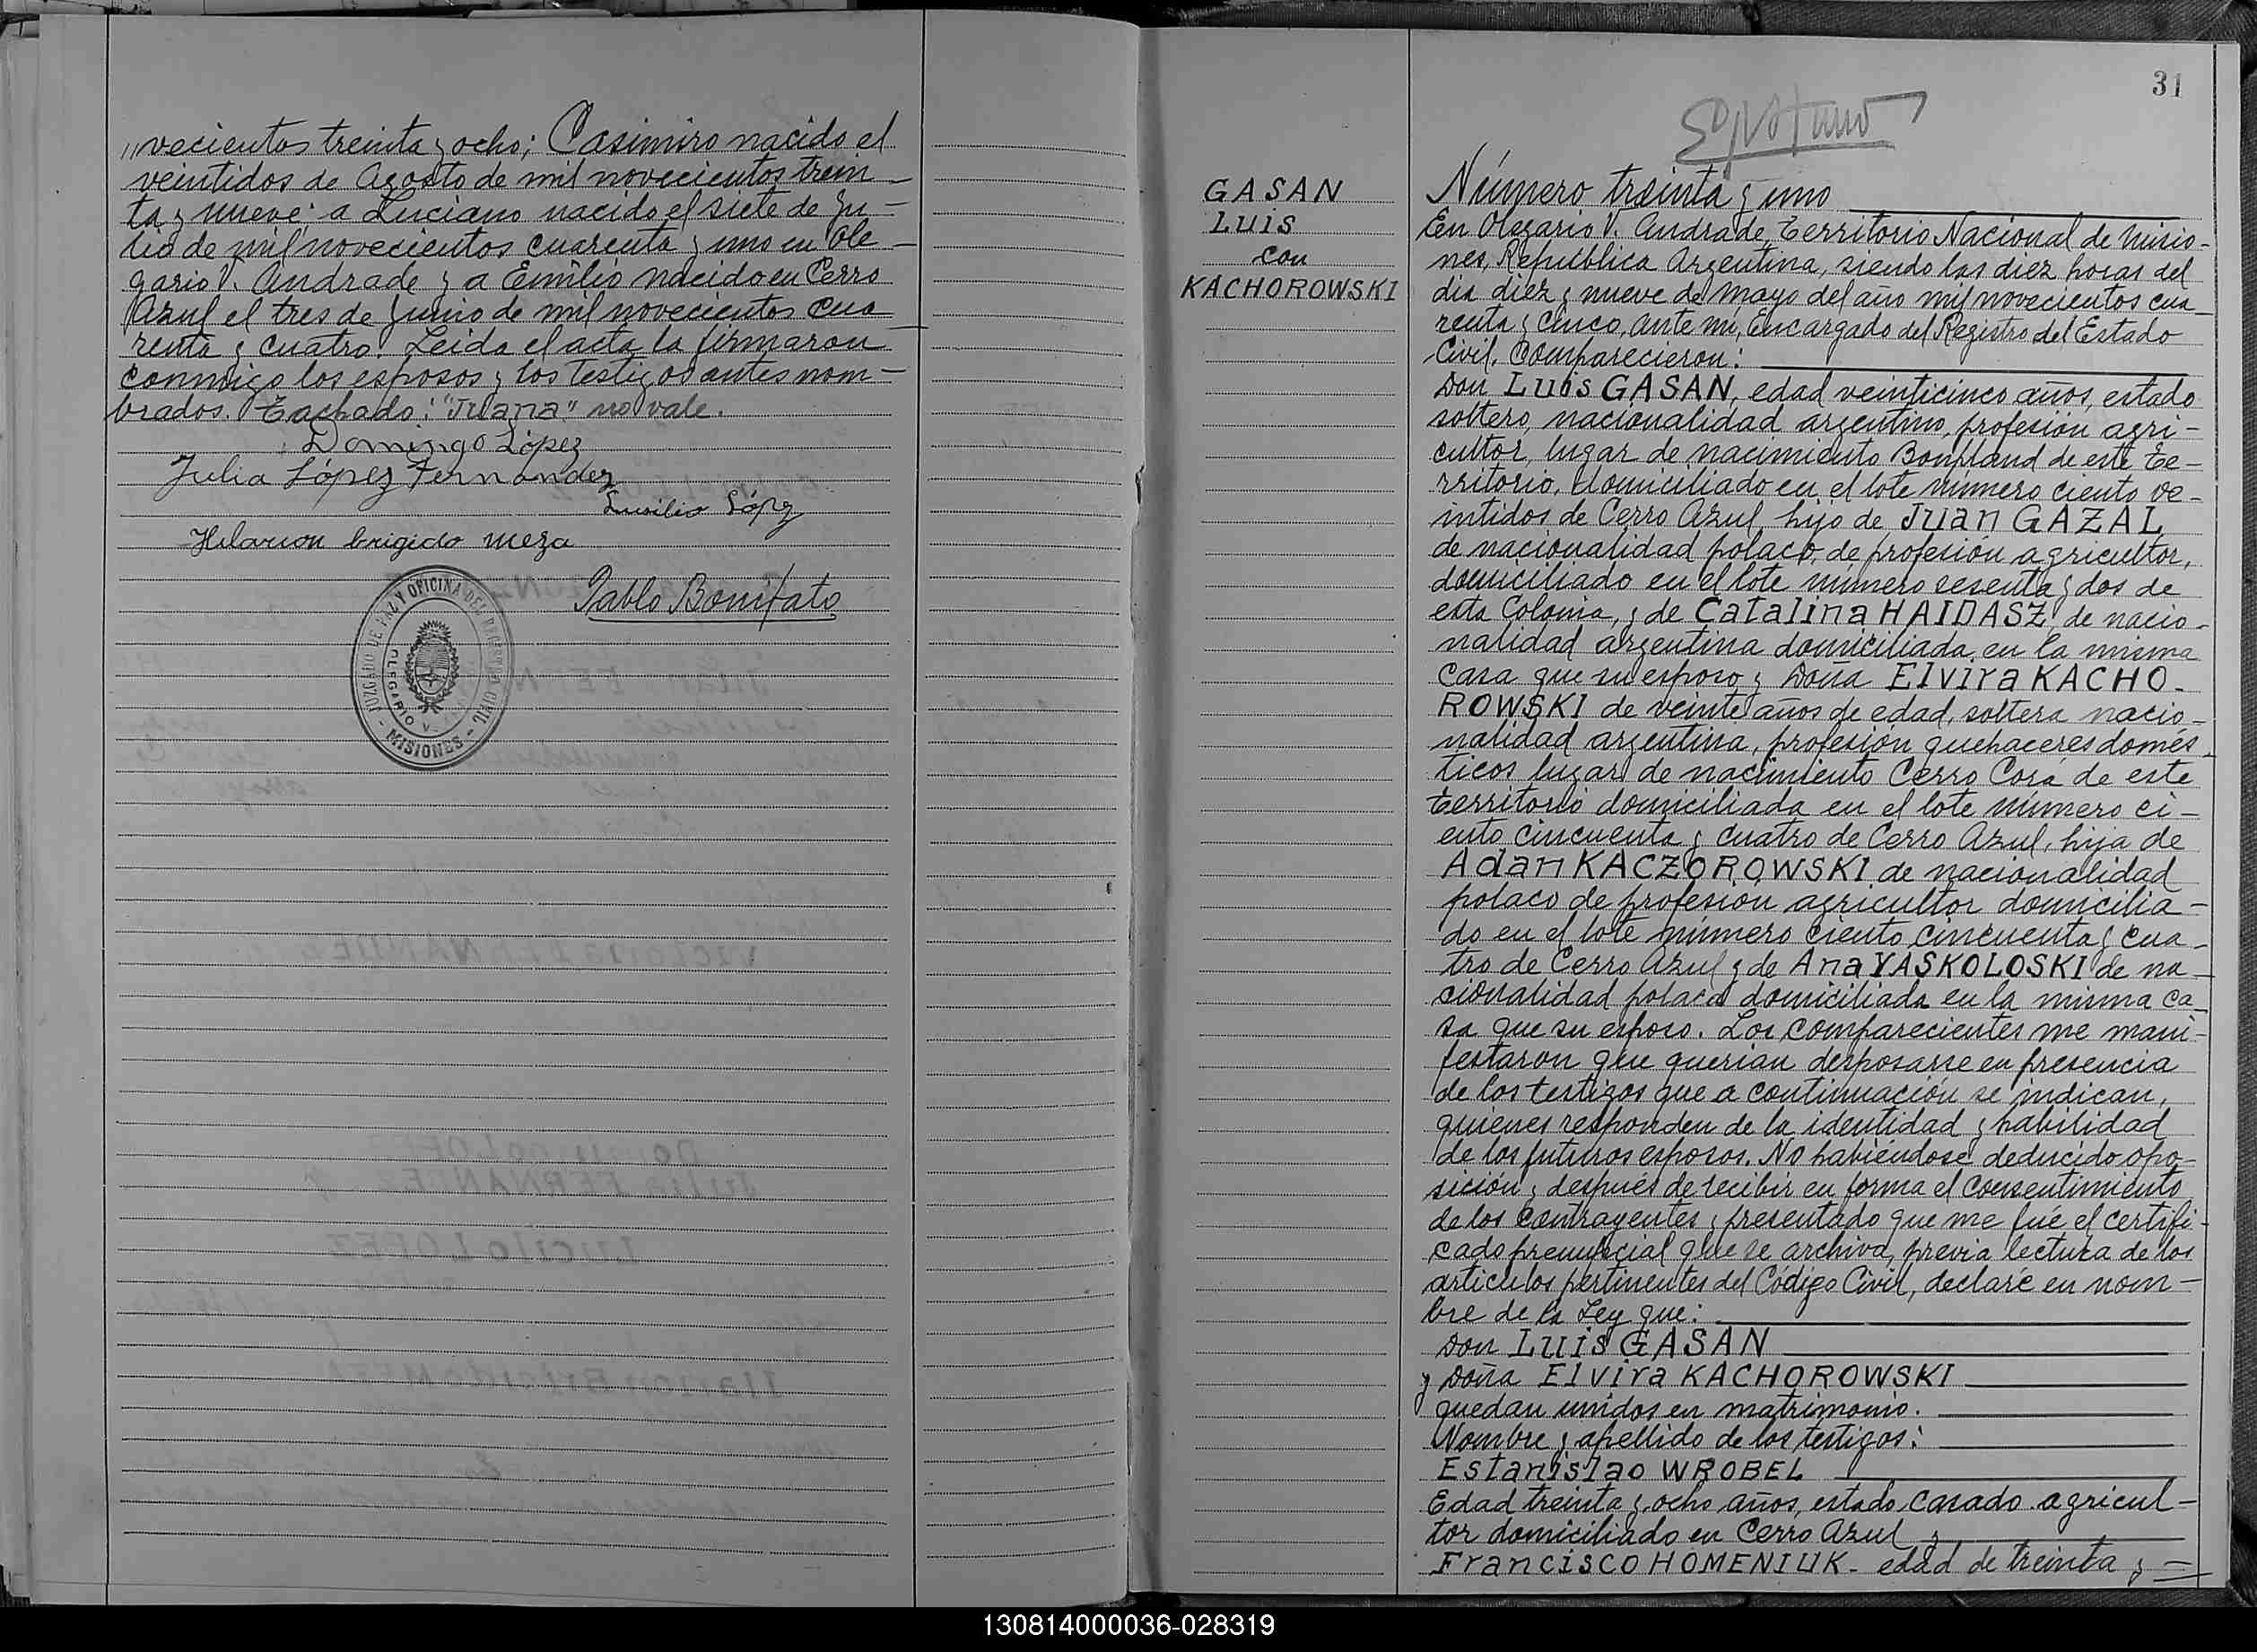 "vecientos treinta y ocho; Casimiro nacido el
veintidos de Agosto de mil novecientos trein-
ta y nueve; a Luciano nacido el siete de Ju-
lio de mil novecientos cuarenta y uno en Ole-
gario V. Andrade y a Emilio nacido en Cerro
Azul el tres de Junio de mil novecientos cua-
renta y cuatro. Leida el acta la firmaron
conmigo los esposos y los testigos antes nom-
brados. Tachado: "Juana" no vale.
Domingo López
Julia López Fernandez
Lusilio López
Hilarion brigido meza
Pablo Bonifato
JUZGADO DE PAZ Y OFICINA DEL REGISTRO CIVIL
OLEGARIO V.
- MISIONES -
31
GASAN
LUIS
con
KACHOROWSKI
Número treinta y uno
En Olegario V. Andrade, Territorio Nacional de Misio-
nes, República Argentina, siendo las diez horas del
dia diez y nueve de Mayo del año mil novecientos cua-
renta y cinco, ante mi, Encargado del Registro del Estado
Civil. Comparecieron:
Don Luis GASAN, edad veinticinco años, estado
soltero, nacionalidad argentino, profesión agri-
cultor, lugar de nacimiento Bonpland de este Te-
rritorio, domiciliado en el lote número ciento ve-
intidos de Cerro Azul, hijo de Juan GAZAL
de nacionalidad polaco, de profesión agricultor,
domiciliado en el lote número sesenta y dos de
esta Colonia, y de Catalina HAIDASZ, de nacio-
nalidad argentina domiciliada en la misma
casa que su esposo y Doña Elvira KACHO-
ROWSKI de veinte años de edad, soltera nacio-
nalidad argentina, profesión quehaceres domés-
ticos lugar de nacimiento Cerro Corá de este
territorio domiciliada en el lote número ci-
ento cincuenta y cuatro de Cerro Azul, hija de
Adan KACZOROWSKI de nacionalidad
polaco de profesión agricultor domicilia-
do en el lote número ciento cincuenta y cua-
tro de Cerro Azul y de Ana YASKOLOSKI de na-
cionalidad polaca domiciliada en la misma ca-
sa que su esposo. Los comparecientes me mani-
festaron que querian desposarse en presencia
de los testigos que a continuación se indican,
quienes responden de la identidad y habilidad
de los futuros esposos. No habiéndose deducido opo-
sición y después de recibir en forma el consentimiento
de los contrayentes y presentado que me fué el certifi-
cado prenupcial que se archiva, previa lectura de los
articulos pertinentes del Código Civil, declaré en nom-
bre de la Ley que:
Don Luis GASAN
y Doña Elvira KACHOROWSKI
quedan unidos en matrimonio.
Nombre y apellido de los testigos:
Estanislao WROBEL
Edad treinta y ocho años, estado casado agricul-
tor domiciliado en Cerro Azul y
Francisco HOMENIUK - edad de treinta y -
130814000036-028319